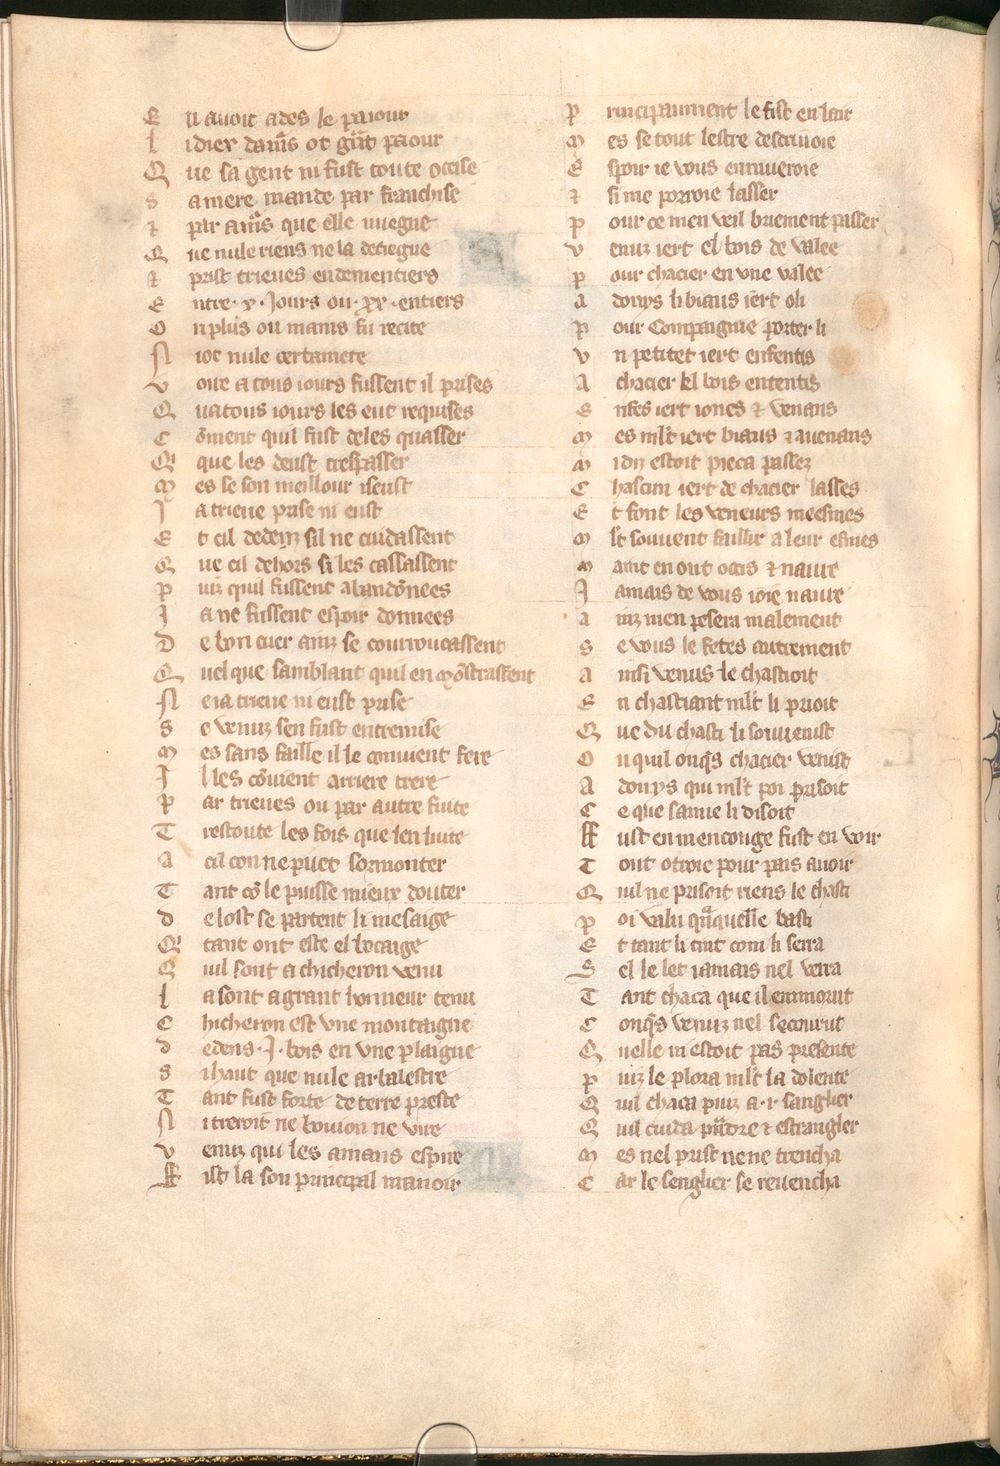 E n auoit ades le paiour
l i diex damrs ot grāt paour
Q ue sa gent ni fust toute occise
S a mere mande par franchise
⁊ par amrs que elle uiegne
Q ue nule riens ne la detiegne
⁊ prist trieues endementiers
E ntre .x. Jours ou .xx. entiers
O n plus ou mains fu recite
N ioc nule certainete
V oire a tous iours fussent il prises
Q ua tous iours les eut requises
C ōment quil fust deles quasser
Q que les deust trespasser
M es se son meillour iseust
J a trieue prise ni eust
E t cil dedenz sil ne cuidassent
Q ue cil dehors si les cassassent
P uiz quil fussent abandōnees
J a ne fussent espoir donnees
D e bon cuer ainz se courroucassent
Q uel que samblant quil en mōstrassent
N e ia trieue ni eust prise
S e venuz sen fust entremise
M es sans faille il le conuient fere
J l les cōuient arriere trere
P ar trieues ou par autre fuite
T restoute les fois que len luite
A cil con ne puet sormonter
T ant cō le puisse mieux douter
D e lost se partent li mesaige
Q tant ont este el bocaige
Q uil sont a chicheron venu
l a sont a grant honneur tenu
C hicheron est vne montaigne
D edens .J. bois en vne plaigne
S i haut que nule arbalestre
T ant fust forte de terre preste
N i treroit ne bouion ne vire
V enuz qui les amans espire
F ist la son principal manoir
P rincipaument le fist en lair
M es se tout lestre descriuoie
E spoir ie vous ennuieroie
⁊ si me porroie lasser
P our ce men veil briement passer
V enuz iert el bois de valee
P our chacier en vne valee
A donys li biaus iert o li
P our Compaignie porter li
V n petitet iert enfentis
A chacier el bois ententis
E nfes iert iones ⁊ venans
M es mlt iert biaus ⁊ auenans
M idy estoit pieca passez
C hascun iert de chacier lasses
E t sont les veneurs meesmes
M lt souuent faillir a leur esmes
M aint en ont ocis ⁊ naure
J amais de vous ioie naure
A inz men pesera malement
S e vous le fetes autrement
A insi venus le chastioit
E n chastiant mlt li prioit
Q ue du chasti li souuenist
O n quil onqs chacier venist
A donys qui mlt poi prisoit
C e que samie li disoit
F ust en mencouge fust en voir
T out otroie pour pais auoir
Q uil ne prisoit riens le chasti
P oi valu qāquelle basti
E t tant li tint com li serra
S el le let iamais nel verra
T ant chaca que il en morut
C onqs venuz nel secourut
Q uelle ni estoit pas presente
P uiz le plora mlt la dolente
Q uil chaca puiz a .i. sanglier
Q uil cuida prēdre ⁊ estrangler
M es nel prist ne ne trencha
C ar le senglier se reuencha